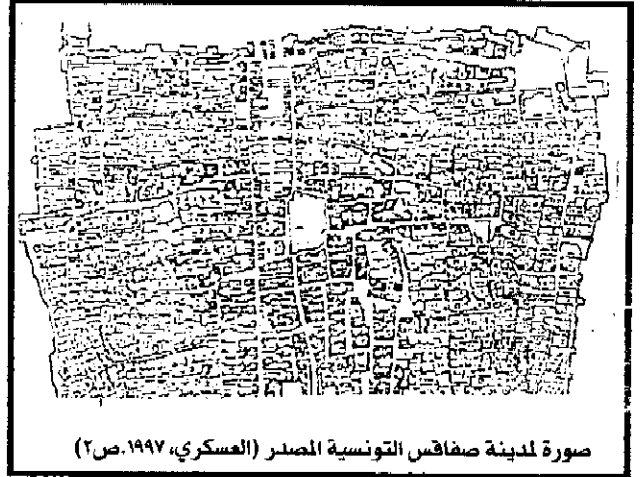 صورة لمدينة صفاقس التونسية المصدر (العسكري، ١٩٩٧.ص٢)